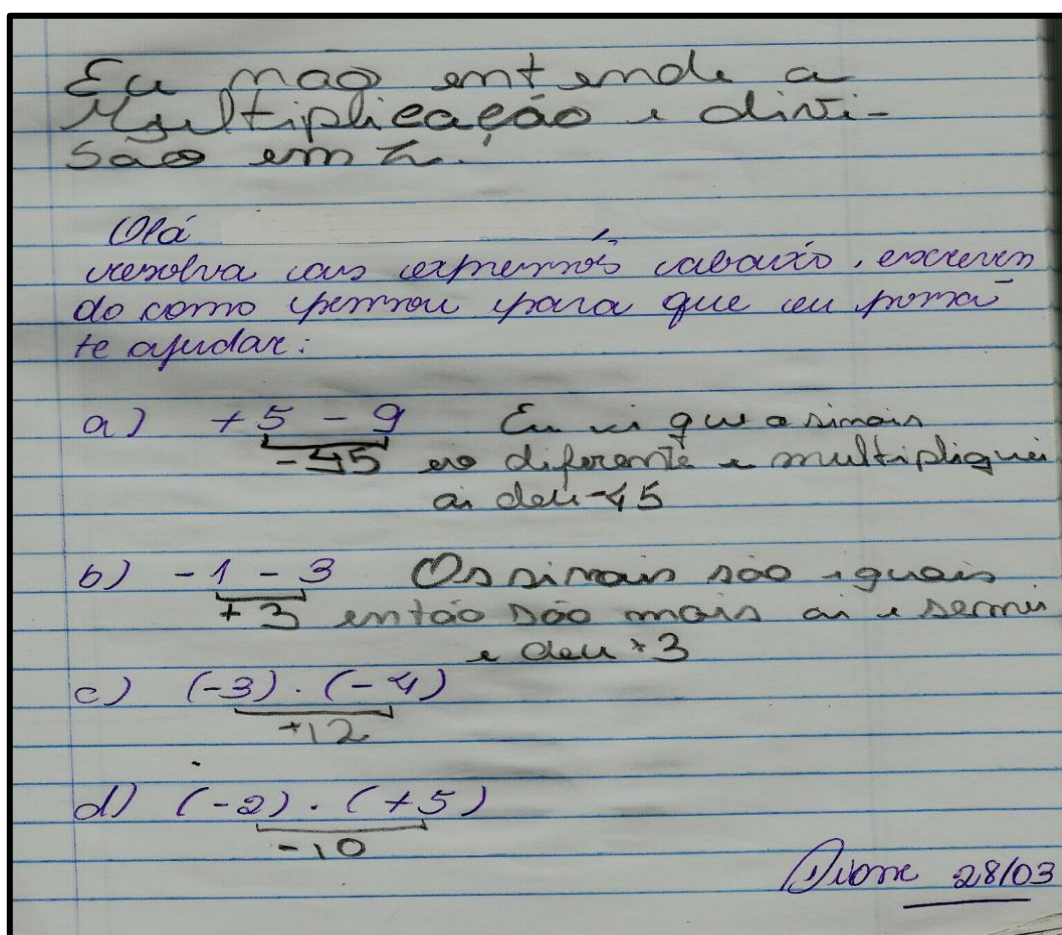 Eu nao entende a
Multiplicação e divi-
sao em Z.
Olá
resolva as expressões abaixo, escreven
do como pensou para que eu possa
te ajudar:
a) +5 - 9 Eu vi que o sinais
-45 eo diferente e multipliquei
ai deu -45
b) -1 - 3 Os sinais são iguais
+3 então são mais ai e
e deu +3
c) (-3) . (-4)
+12
d) (-2) . (+5)
-10
28/03